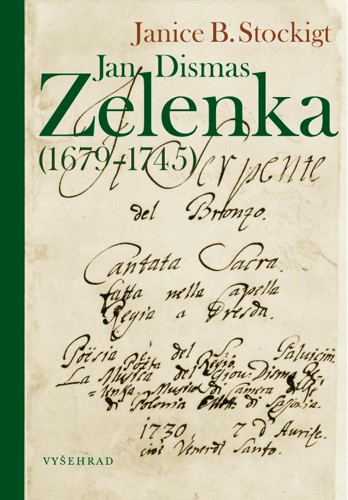 Janice B. Stockigt
Jan Dismas
Zelenka
(1679–1745)
Il Serpente
del Bronzo.
Cantata Sacra.
fatta nella Capella
Regia a Dresda.
Poësia è del Sigre.
La Musica del Sigre. Giov: Disma Ze-
lenka, Musico di Camera
di Polonia
1730
cioè Venerdi Santo.
VYŠEHRAD